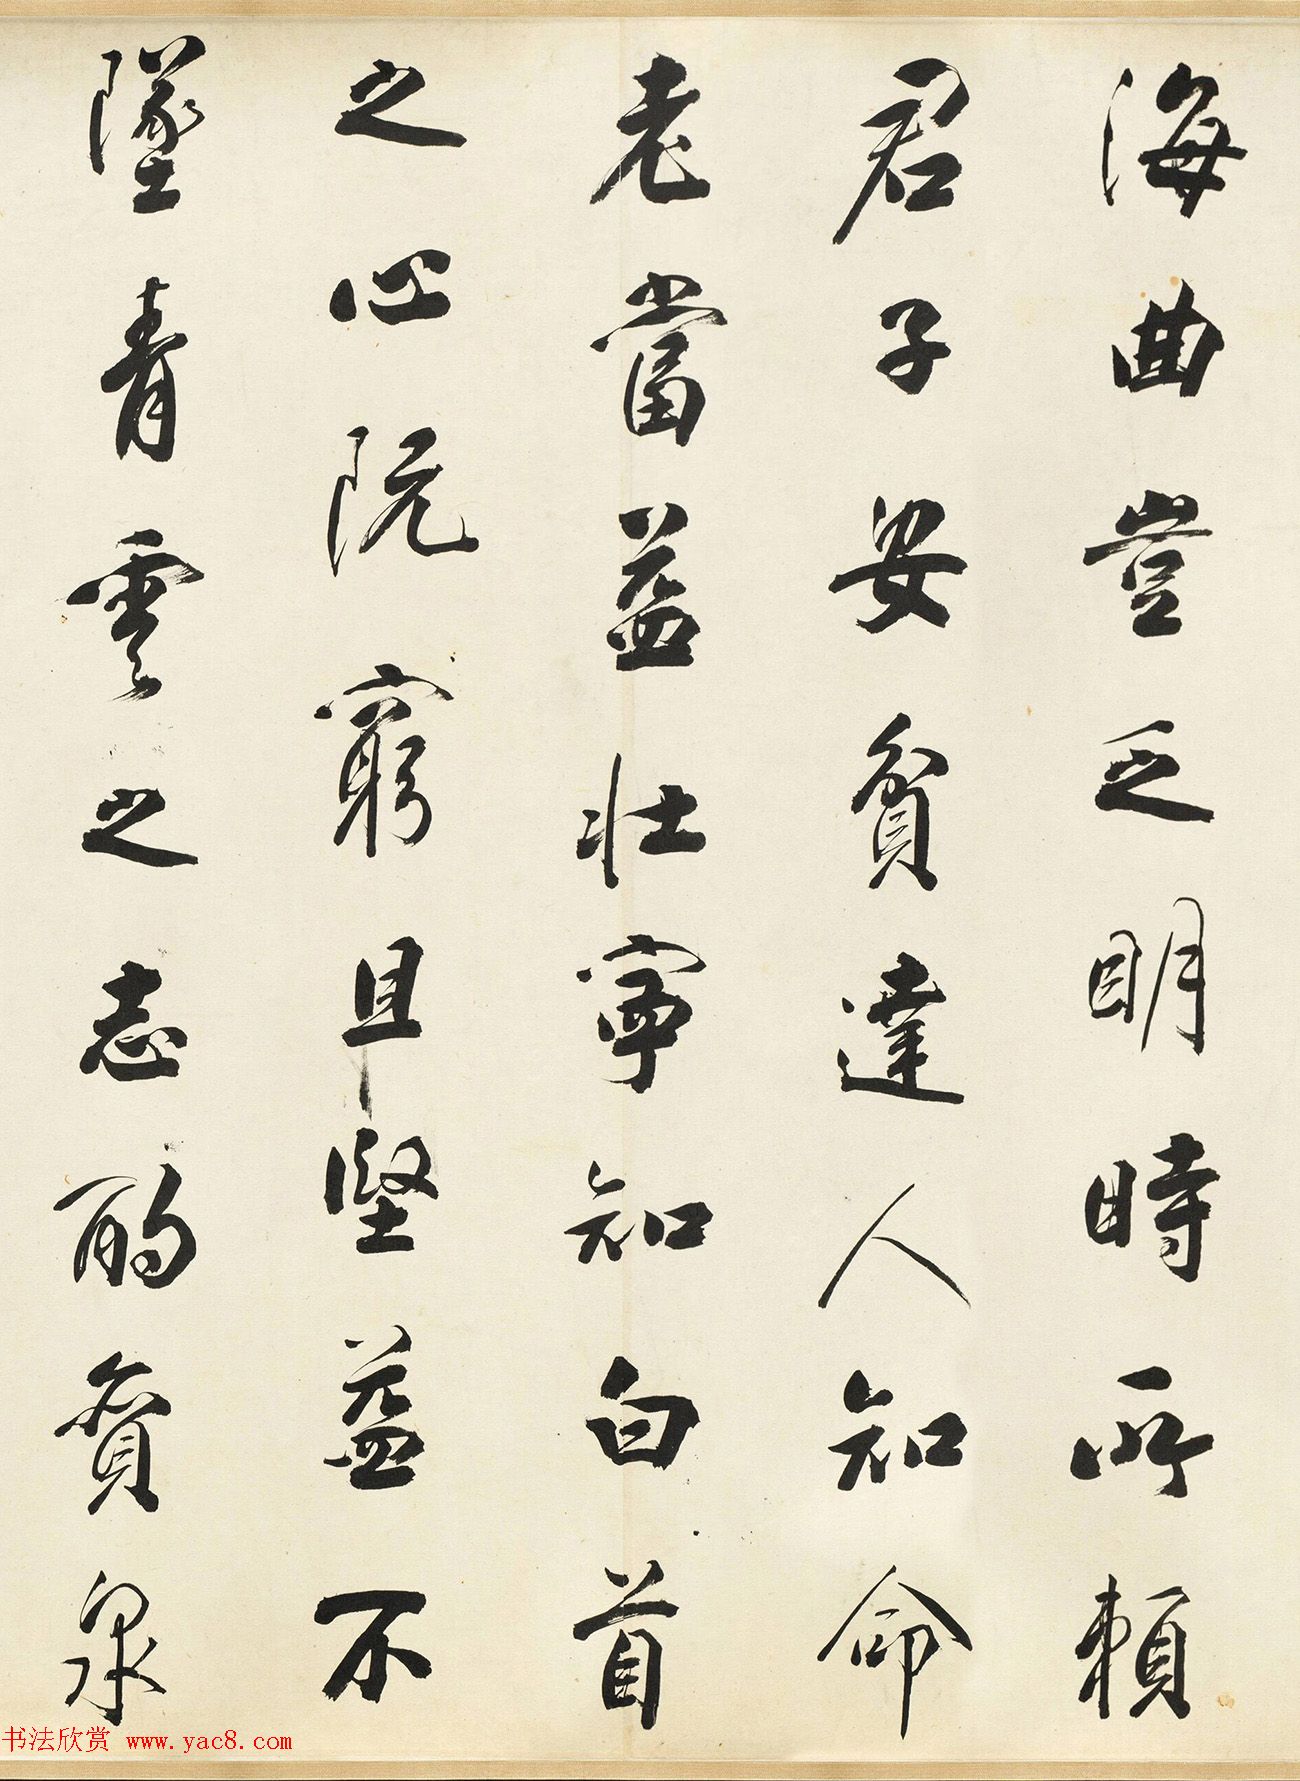 海曲豈乏明時所賴
君子安貧達人知命
老當益壯寧知白首
之心阮窮且堅益不
墜青雲之志酌貪泉
书法欣赏 www.yac8.com